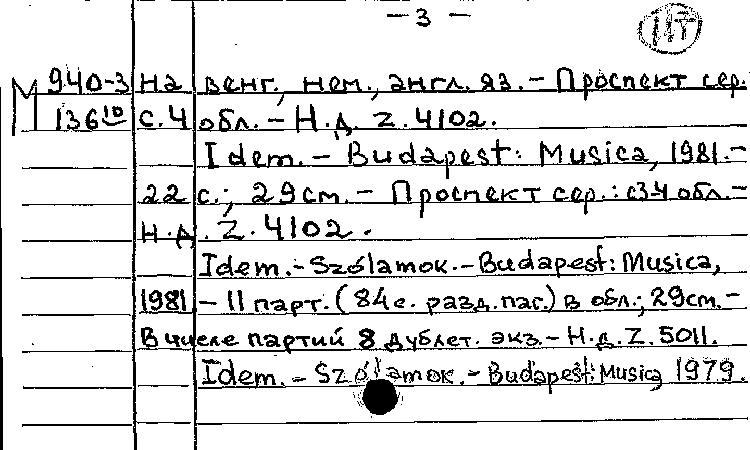 — 3 —
М 940-3 На венг., нем., англ. яз. – Проспект сер.
136 10 с. 4 обл. – Н.д. Z. 4102.
Idem. – Budapest: Musica, 1981. –
22 с.; 29 см. – Проспект сер.: с 3-4 обл. –
Н.д. Z. 4102.
Idem. – Szólamok. – Budapest: Musica,
1981 – 11 парт. (84 с. разд. паг.) в обл.; 29 см. –
В числе партий 8 дублет. экз. – Н.д. Z. 5011.
Idem. – Szólamok. – Budapest: Musica 1979.